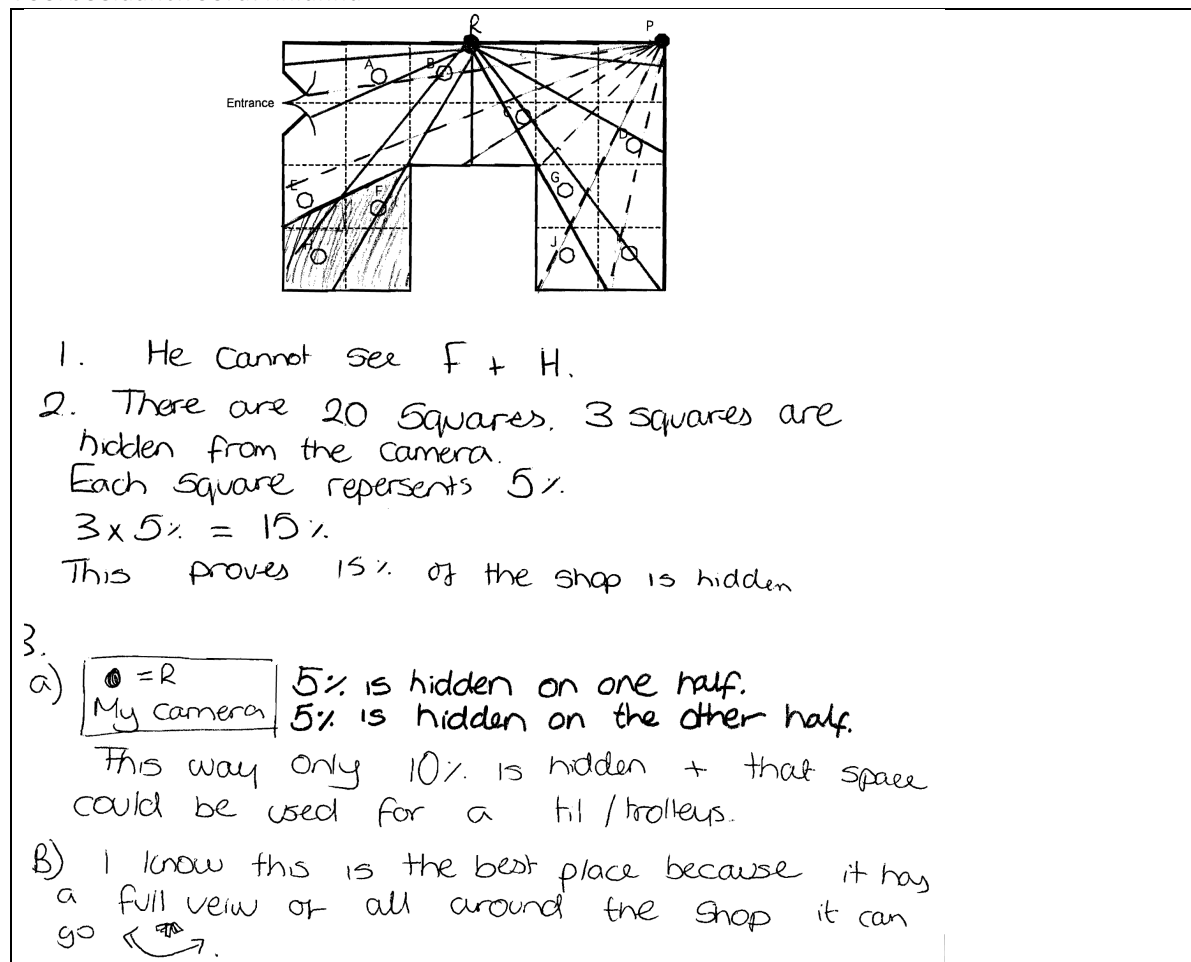 R
P
A
B
Entrance
C
D
E
F
G
H
J
1. He cannot see F + H.
2. There are 20 squares. 3 squares are
hidden from the camera.
Each square repersents 5%
3 x 5% = 15%
This proves 15% of the shop is hidden
3.
a) = R
My camera
5% is hidden on one half.
5% is hidden on the other half.
This way only 10% is hidden + that space
could be used for a til / trolleys.
B) I know this is the best place because it has
a full veiw of all around the shop it can
go